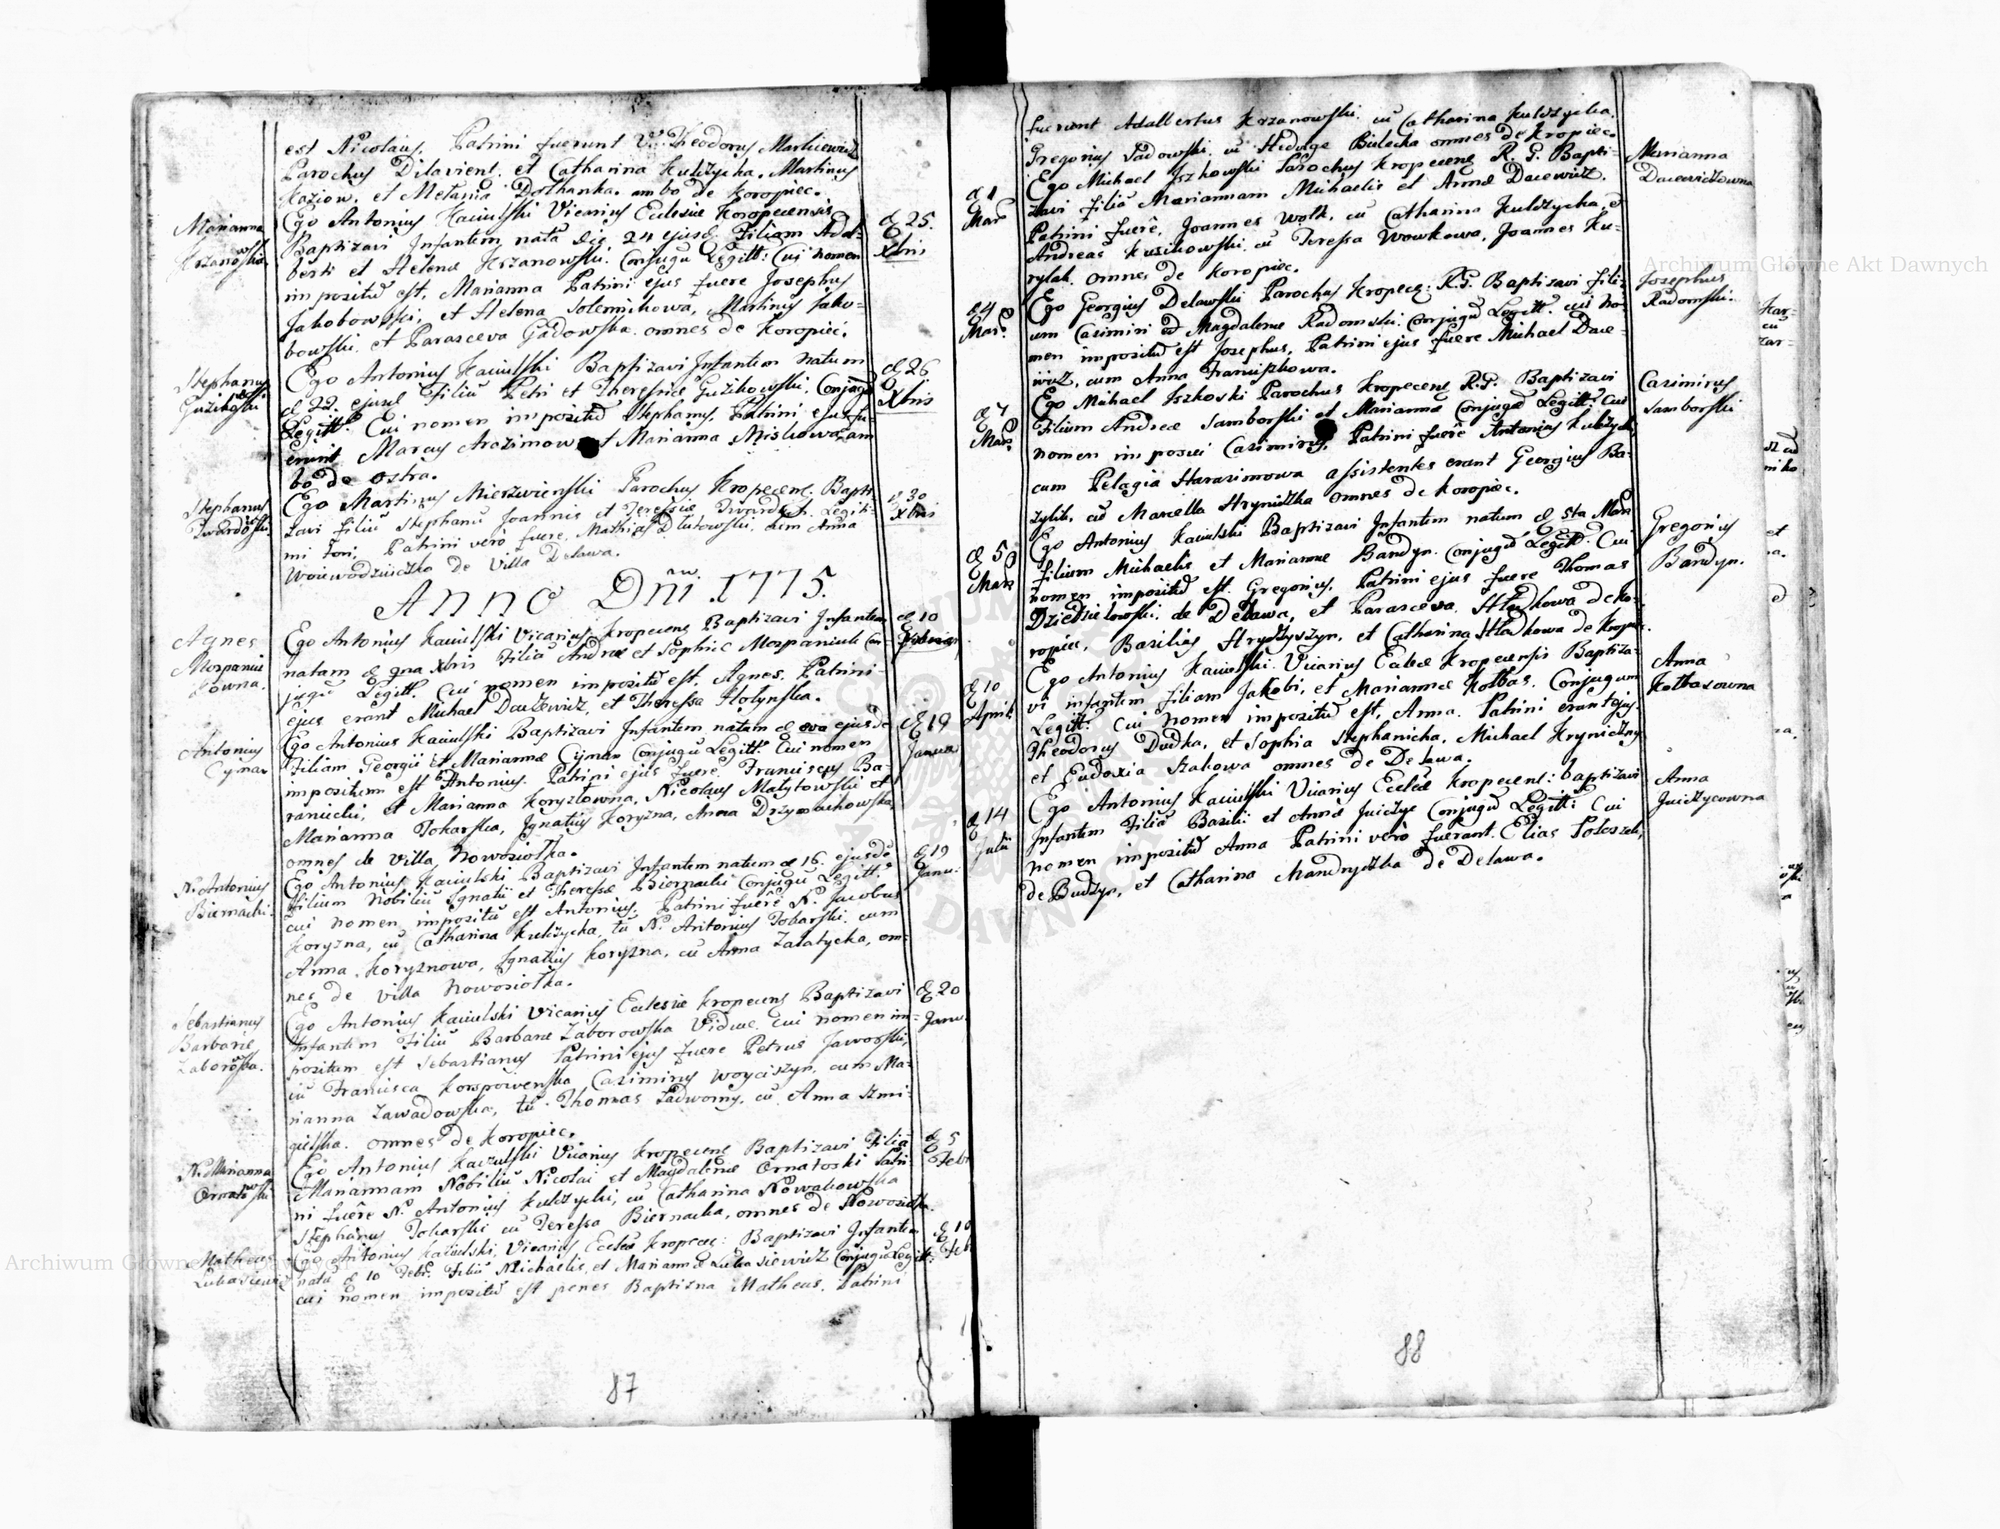 est Nicolaus. Patrini fuerunt V. Theodorus Markiewicz
Parochus Dilavient. et Catharina Kulczycka. Martinus
Koziow. et Melania Dolhanka. ambo de Koropiec.
Marianna
Krzanowska
Ego Antonius Kaciulski Vicarius Eclesiæ Koropecensis
d 25.
Xbris
Baptizavi Infantem natã die 24 ejusd. Filiam Adal-
berti et Helenæ Krzanowski. Conjugũ Legitt: Cui nomen
impositũ est. Marianna Patrini ejus fuere Josephus
Jakobowski, et Helena Solennikowa, Martinus Jako-
bowski, et Parasceva Gadowska. omnes de Koropiec.
Stephanus
Guzikowski
Ego Antonius Kaciulski Baptizavi Infantem natum
d 26
Xbris
d 22. ejusd Filiũ Petri et Theressiæ Guzikowski. Conjugũ
Legitt: Cui nomen impositũ Stephanus. Patrini ejus fu-
erunt Marcus Arazimow et Marianna Miskowa, am
bo de Ostra.
Stephanus
Twardowski.
Ego Martinus Mierzwienski Parochus Kropecens. Bapti-
d 30
Xbris
zavi Filiũ Stephanũ Joannis et Teressiæ Twardoch. Legit-
mi Tori. Patrini verò fuere. Mathias Dlutowski, cum Anna
Woiewodziiczko de Villa Delawa.
Anno Dñi 1775.
Agnes
Mospaniu
kowna.
Ego Antonius Kaciulski Vicarius Kropecens Baptizavi Infantem
d 10
natam d 9na Xbris Filiã Andreæ et Sophiæ Mospaniuk Con
jugũ Legitt. Cui nomen impositũ est. Agnes. Patrini
ejus erant Michael Daczewicz, et Theressa Holynska.
Antonius
Cyman
Ego Antonius Kaciulski Baptizavi Infantem natam d 8va ejusde
d 19
Januar
Filiam Georgii et Mariannæ Cyman Conjugũ Legitt: Cui nomen
impositum est Antonius. Patrini ejus fuere. Franciscus Ba-
raniecki, et Marianna Koryzlowna, Nicolaus Malytowski et
Marianna Tokarska, Ignatius Koryzna, Anna Drzymachowska
omnes de Villa Nowosiołka.
N. Antonius
Biernacki.
Ego Antonius Kaciulski Baptizavi Infantem natum d 16. ejusdẽ
d 19
Janu:
Filium Nobiliũ Ignatii et Theressæ Biernacki Conjugũ Legitt:
cui nomen impositũ est Antonius. Patrini fuerê N. Jacobus
Koryzna, cũ Catharina Kulczycka, tũ N. Antonius Tokarski. cum
Anna Koryznowa, Ignatius Koryzna, cũ Anna Zalatycka, om-
nes de Villa Nowosiołka.
Sebastianus
Barbaræ
Zaborowska.
Ego Antonius Kaciulski Vicarius Eclesiæ Kropecens Baptizavi
d 20
Janu.
Infantem Filiũ Barbaræ Zaborowska Viduæ. cui nomen im-
positum est Sebastianus Patrini ejus fuere Petrus Jaworski,
cũ Francisca Korspowenska Casimirus Woyciszyn. cum Ma-
rianna Zawadowska, tũ Thomas Ladworny. cũ Anna Szmi-
gielska. omnes de Koropiec.
N. Marianna
Ornatowski
Ego Antonius Kaczulski Vicarius Kropecens Baptizavi Filiã
d 5
Febr
Mariannam Nobiliũ Nicolai et Magdalenæ Ornatoski Patri-
ni fuêre N. Antonius Kulczycki, cũ Catharina Nowakowska
Stephanus Tokarski cũ Teressa Biernacka, omnes de Nowosiołka.
Matheus
Lukasiewicz
Ego Antonius Kaciulski, Vicarius Ecclæ Kropece: Baptizavi Infantem
d 10
Feb
natũ d 10 Febr. Filiũ Michaelis, et Mariannæ Lukasiewicz Conjugũ Legitt:
cui nomen impositũ est penes Baptizna Matheus. Patrini
87
fuerunt Adalbertus Krzanowski. cũ Catharina Kulczycka.
Gregorius Sadowski, cũ Hedvige Bielecka omnes de Kropiec.
d 1
Mar
Ego Michael Iszkowski Parochus Kropecens R. G. Bapti-
Marianna
Dacewiczowna
zavi Filiã Mariannam Michaelis et Annæ Dacewicz.
Patrini fuerê, Joannes Wolk, cũ Catharina Kulczycka, et
Andreas Kuzikowski, cũ Teressa Wowkowa, Joannes Ku-
rylak. omnes de Koropiec.
d 4
Mar.
Ego Georgius Delawski Parochus Kropece: R.G. Baptizavi Fili-
Josephus
Radomski.
um Casimiri ed Magdalenæ Radomski. Conjugũ Legitt. cui no-
men impositũ est Josephus, Patrini ejus fuere Michael Dace-
wicz, cum Anna Franiszkowa.
d 7
Mar.
Ego Michael Iszkoski Parochus Kropecens R.G. Baptizavi
Casimirus
Samborski
Filium Andreæ Samborski et Mariannæ Conjugũ Legitt: Cui
nomen imposui Casimirus, Patrini fuerê Antonius Kulczycki
cum Pelagia Harasimowa assistentes erant Georgius Ba-
zylik, cũ Marcella Hryniczka omnes de Koropiec.
d 5
Mar.
Ego Antonius Kaciulski Baptizavi Infantem natum d 5ta Mar
Gregorius
Bandyr.
Filium Michaelis et Mariannæ Bandyr. Conjugũ Legitt. Cui
nomen impositũ est Gregorius, Patrini ejus fuere Thomas
Dziedzielowski. de Delawa, et Parasceva Hladkowa de Ko-
ropiec, Basilius Hrydzyszyn, et Catharina Hladkowa de Kropie.
d 10
Aprili
Ego Antonius Kaciulski. Vicarius Ecclæ Kropecensis Baptiza-
Anna
Kotbasowna
vi infantem Filiam Jakobi, et Mariannæ Kolbas. Conjugum
Legitt. Cui nomen impositũ est, Anna. Patrini erant ejus.
Theodorus Dudka, et Sophia Stephanicha, Michael Hryniczny
et Eudoxia Szakowa omnes de Delawa.
d 14
Julii
Ego Antonius Kaciulski Vicarius Ecclæ Kropecens: baptizavi
Anna
Juiczycowna
Infantem Filiã Basilii et Annæ Juiczyc Conjugũ Legitt: Cui
nomen impositũ Anna Patrini verò fuerant. Elias Poloszcki,
de Budzyn, et Catharina Mandryczka de Delawa.
88
Archiwum Główne Akt Dawnych
Archiwum Główne Akt Dawnych